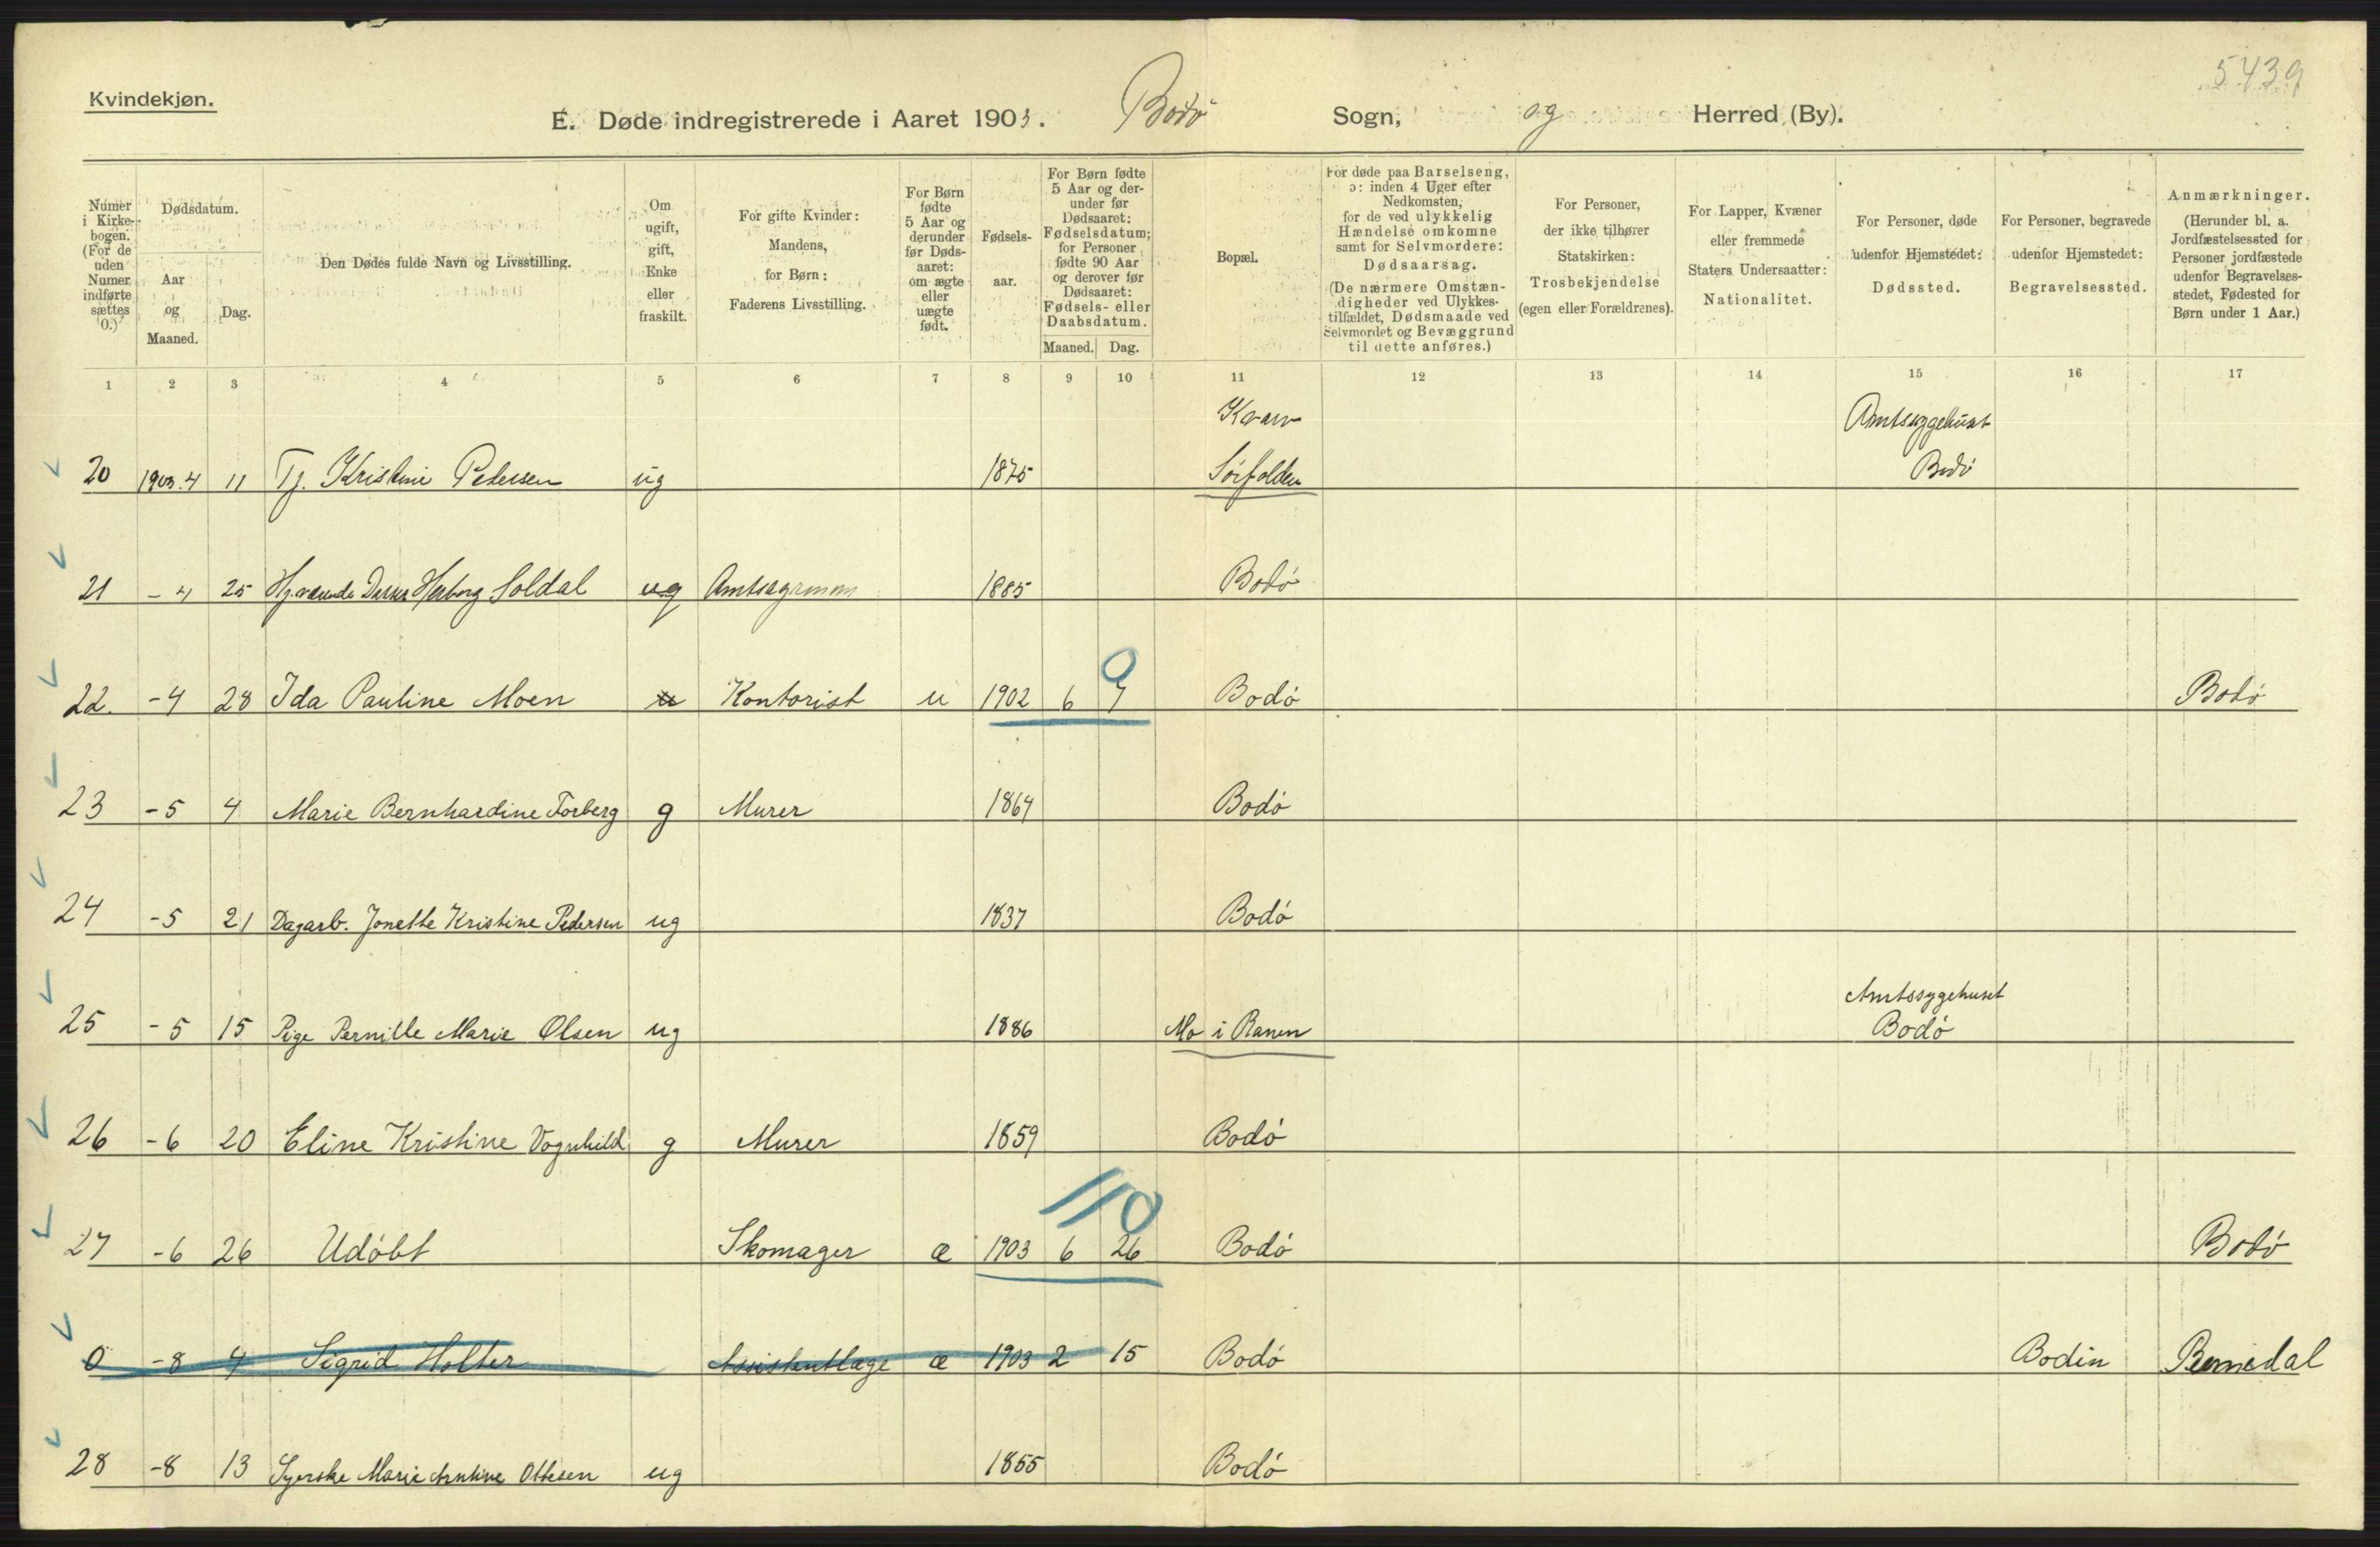 5439
Kvindekjøn.
E. Døde indregistrerede i Aaret 1903. Bodø Sogn, og Herred (By).
Numer i Kirkebogen. (For de uden Numer indførte sættes 0.)
Dødsdatum.
Aar og Maaned.
Dag.
Den Dødes fulde Navn og Livsstilling.
Om ugift, gift, Enke eller fraskilt.
For gifte Kvinder: Mandens, for Børn: Faderens Livsstilling.
For Børn fødte 5 Aar og derunder før Dødsaaret: om ægte eller uægte født.
Fødselsaar.
For Børn fødte 5 Aar og derunder før Dødsaaret: Fødselsdatum; for Personer fødte 90 Aar og derover før Dødsaaret: Fødsels- eller Daabsdatum.
Maaned. Dag.
Bopæl.
For døde paa Barselseng, ɔ: inden 4 Uger efter Nedkomsten, for de ved ulykkelig Hændelse omkomne samt for Selvmordere: Dødsaarsag. (De nærmere Omstændigheder ved Ulykkestilfældet, Dødsmaade ved Selvmordet og Bevæggrund til dette anføres.)
For Personer, der ikke tilhører Statskirken: Trosbekjendelse (egen eller Forældrenes).
For Lapper, Kvæner eller fremmede Staters Undersaatter: Nationalitet.
For Personer, døde udenfor Hjemstedet: Dødssted.
For Personer, begravede udenfor Hjemstedet: Begravelsessted.
Anmærkninger. (Herunder bl. a. Jordfæstelsessted for Personer jordfæstede udenfor Begravelsesstedet, Fødested for Børn under 1 Aar.)
1 2 3 4 5 6 7 8 9 10 11 12 13 14 15 16 17
Amtssygehuset
20 1903.4 11 Tj. Kristine Petersen ug 1875 Sørfolden Bodø
21 - 4 25 Herborg Soldal ug 1885 Bodø
0
22. -4 28 Ida Pauline Moen u Kontorist u 1902 6 7 Bodø Bodø
23 -5 4 Marie Bernhardine Forberg g Murer 1864 Bodø
24 -5 21 Dagarb. Jonette Kristine Pedersen ug 1837 Bodø
Amtssygehuset
25 -5 15 Pige Pernille Marie Olsen ug 1886 Mo i Ranen Bodø
26 -6 20 Eline Kristine Vognhild g Murer 1859 Bodø
110
27 -6 26 Udøbt Skomager æ 1903 6 26 Bodø Bodø
0 -8 4 Sigrid Holter Assistentlæge æ 1903 2 15 Bodø Bodin
28 -8 13 Syerske Marie Arntine Ottesen ug 1855 Bodø